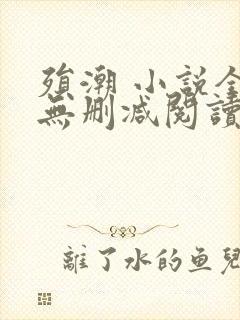 殞潮 小説全
無删减閱讀
離了水的鱼兒